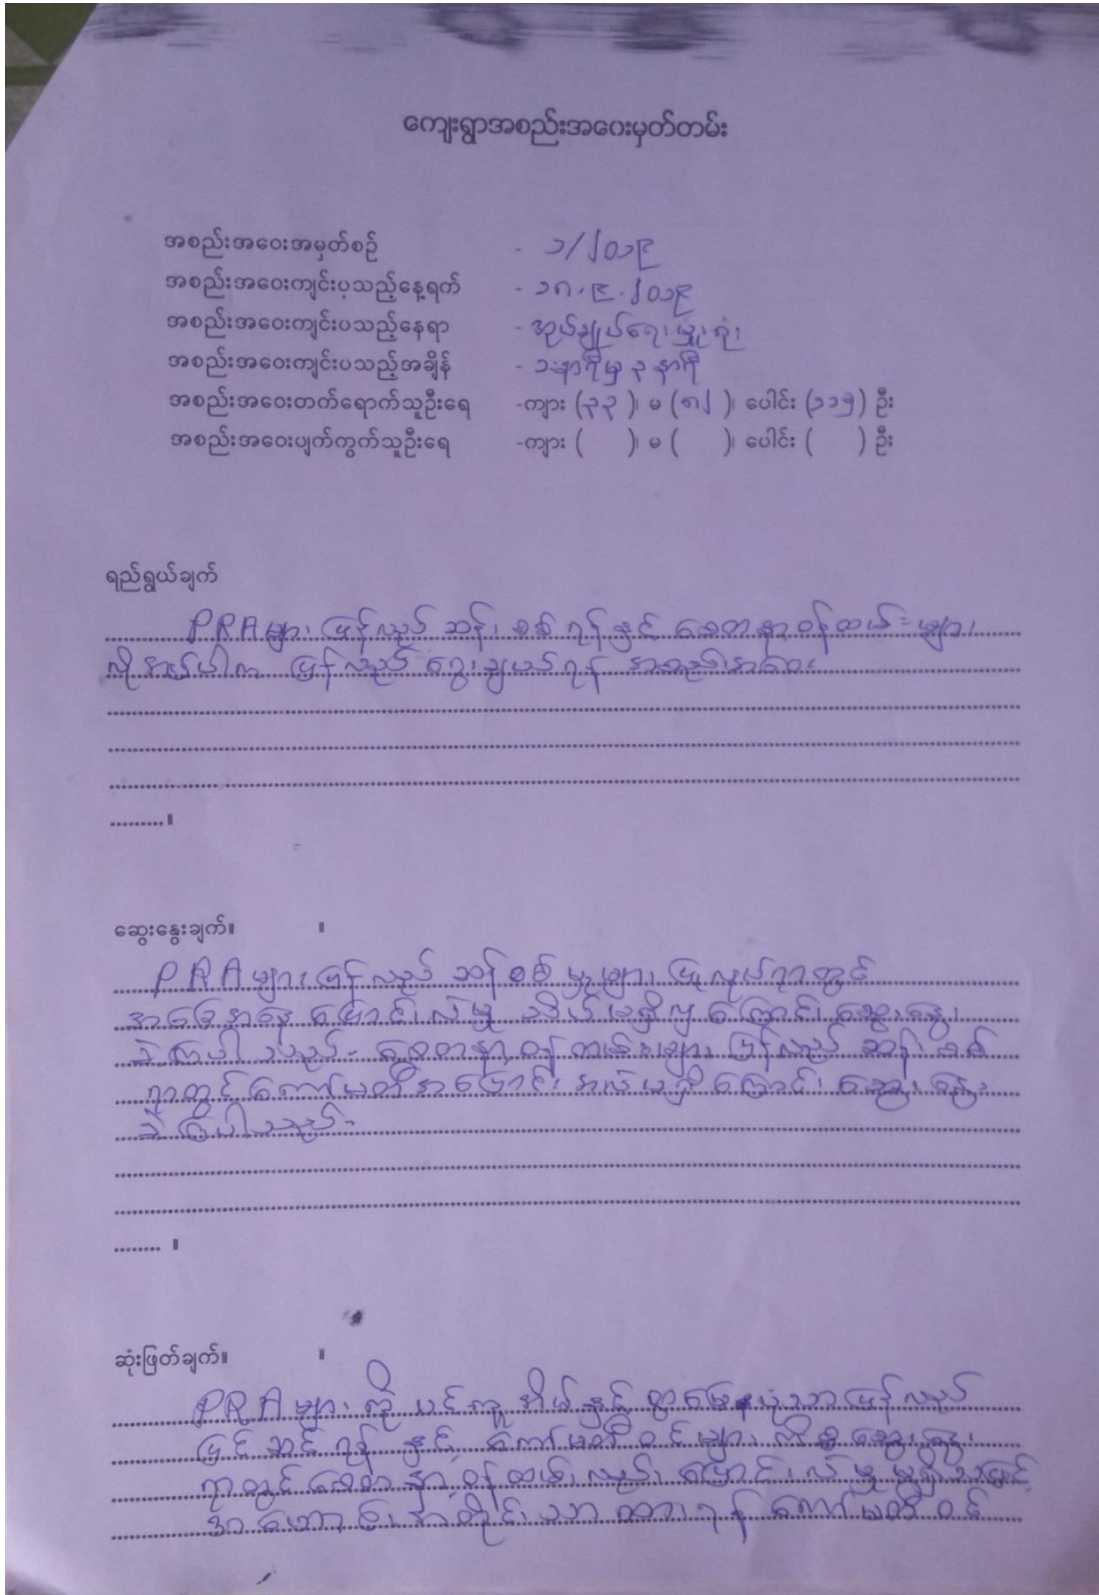 ကျေးရွာအစည်းအဝေးမှတ်တမ်း
အစည်းအဝေးအမှတ်စဉ် - ၁/၂၀၁၉
အစည်းအဝေးကျင်းပသည့်နေ့ရက် - ၁၈.၉.၂၀၁၉
အစည်းအဝေးကျင်းပသည့်နေရာ - အုပ်ချုပ်ရေးမှူးရုံး
အစည်းအဝေးကျင်းပသည့်အချိန် - ၁နာရီမှ ၃ နာရီ
အစည်းအဝေးတက်ရောက်သူဦးရေ -ကျား (၃၃ )၊ မ (၈၂ )၊ ပေါင်း (၁၁၅) ဦး
အစည်းအဝေးပျက်ကွက်သူဦးရေ -ကျား ( )၊ မ ( )၊ ပေါင်း ( ) ဦး
ရည်ရွယ်ချက်
PRA များ ပြန်လည် ဆန်း စစ် ရန်နှင့် စေတနာ့ဝန်ထမ်းများ
လိုအပ်ပါက ပြန်လည် ရွေးချယ်ရန် အစည်းအဝေး
ဆွေးနွေးချက်။ ။
PRA များ ပြန်လည် ဆန်းစစ် မှုများ ပြုလုပ်ရာတွင်
အခြေအနေ ပြောင်းလဲမှု သိပ်မရှိမှု ကြောင်း ဆွေးနွေး
ခဲ့ကြပါသည်- စေတနာ့ ဝန်ထမ်းများ ပြန်လည် ဆန်းစစ်
ရာတွင် ကော်မတီ အပြောင်း အလဲမရှိ ကြောင်း ဆွေးနွေး
ခဲ့ကြပါသည်-
ဆုံးဖြတ်ချက်။ ။
PRA များ ကို ပင်ကူ အိမ်နှင့် ရွာမြေပုံသာ ပြန်လည်
ပြင်ဆင်ရန် နှင့် ကော်မတီဝင်များ ဆွေးနွေး
ရာတွင် စေတနာ့ ဝန်ထမ်းလည်း ပြောင်းလဲမှု မရှိသဖြင့်
အဟောင်း အတိုင်းသာ ထားရန် ကော်မတီဝင်